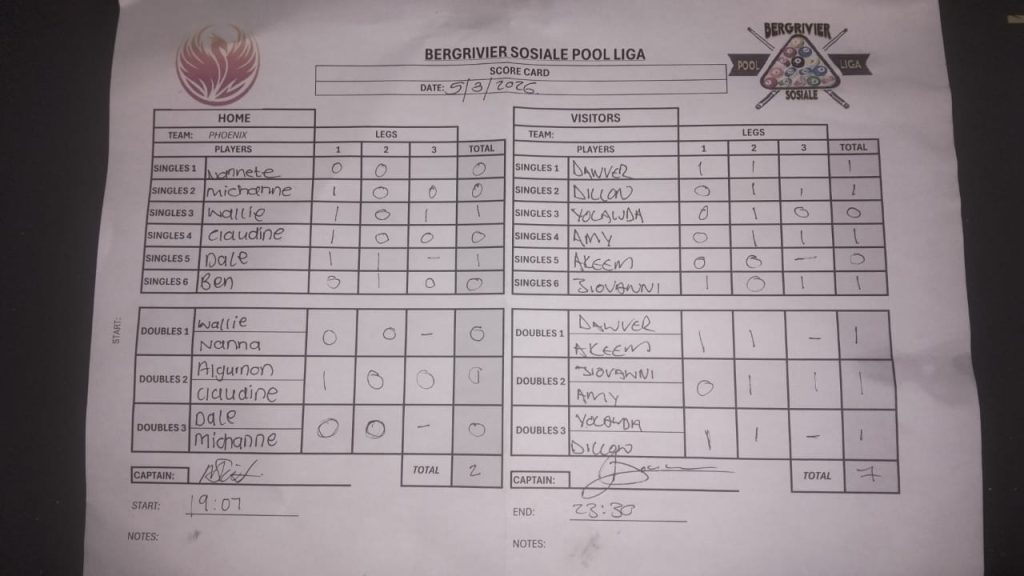 BERGRIVIER
POOL LIGA
SOSIALE
BERGRIVIER SOSIALE POOL LIGA
SCORE CARD
DATE: 5/3/2026
HOME
TEAM: PHOENIX LEGS
PLAYERS 1 2 3 TOTAL
SINGLES 1 Nannete 0 0 0
SINGLES 2 Michanne 1 0 0 0
SINGLES 3 Wallie 1 0 1 1
SINGLES 4 Claudine 1 0 0 0
SINGLES 5 Dale 1 1 - 1
SINGLES 6 Ben 0 1 0 0
START:
DOUBLES 1 Wallie 0 0 - 0
Nanna
DOUBLES 2 Algumon 1 0 0 0
Claudine
DOUBLES 3 Dale 0 0 - 0
Michanne
CAPTAIN: TOTAL 2
START: 19:07
NOTES:
VISITORS
TEAM: LEGS
PLAYERS 1 2 3 TOTAL
SINGLES 1 DAWVER 1 1 1
SINGLES 2 DILLON 0 1 1 1
SINGLES 3 YOLANDA 0 1 0 0
SINGLES 4 AMY 0 1 1 1
SINGLES 5 AKEEM 0 0 - 0
SINGLES 6 JIOVANNI 1 0 1 1
DOUBLES 1 DAWVER 1 1 - 1
AKEEM
DOUBLES 2 JIOVANNI 0 1 1 1
AMY
DOUBLES 3 YOLANDA 1 1 - 1
DILLON
CAPTAIN: TOTAL 7
END: 23:30
NOTES: